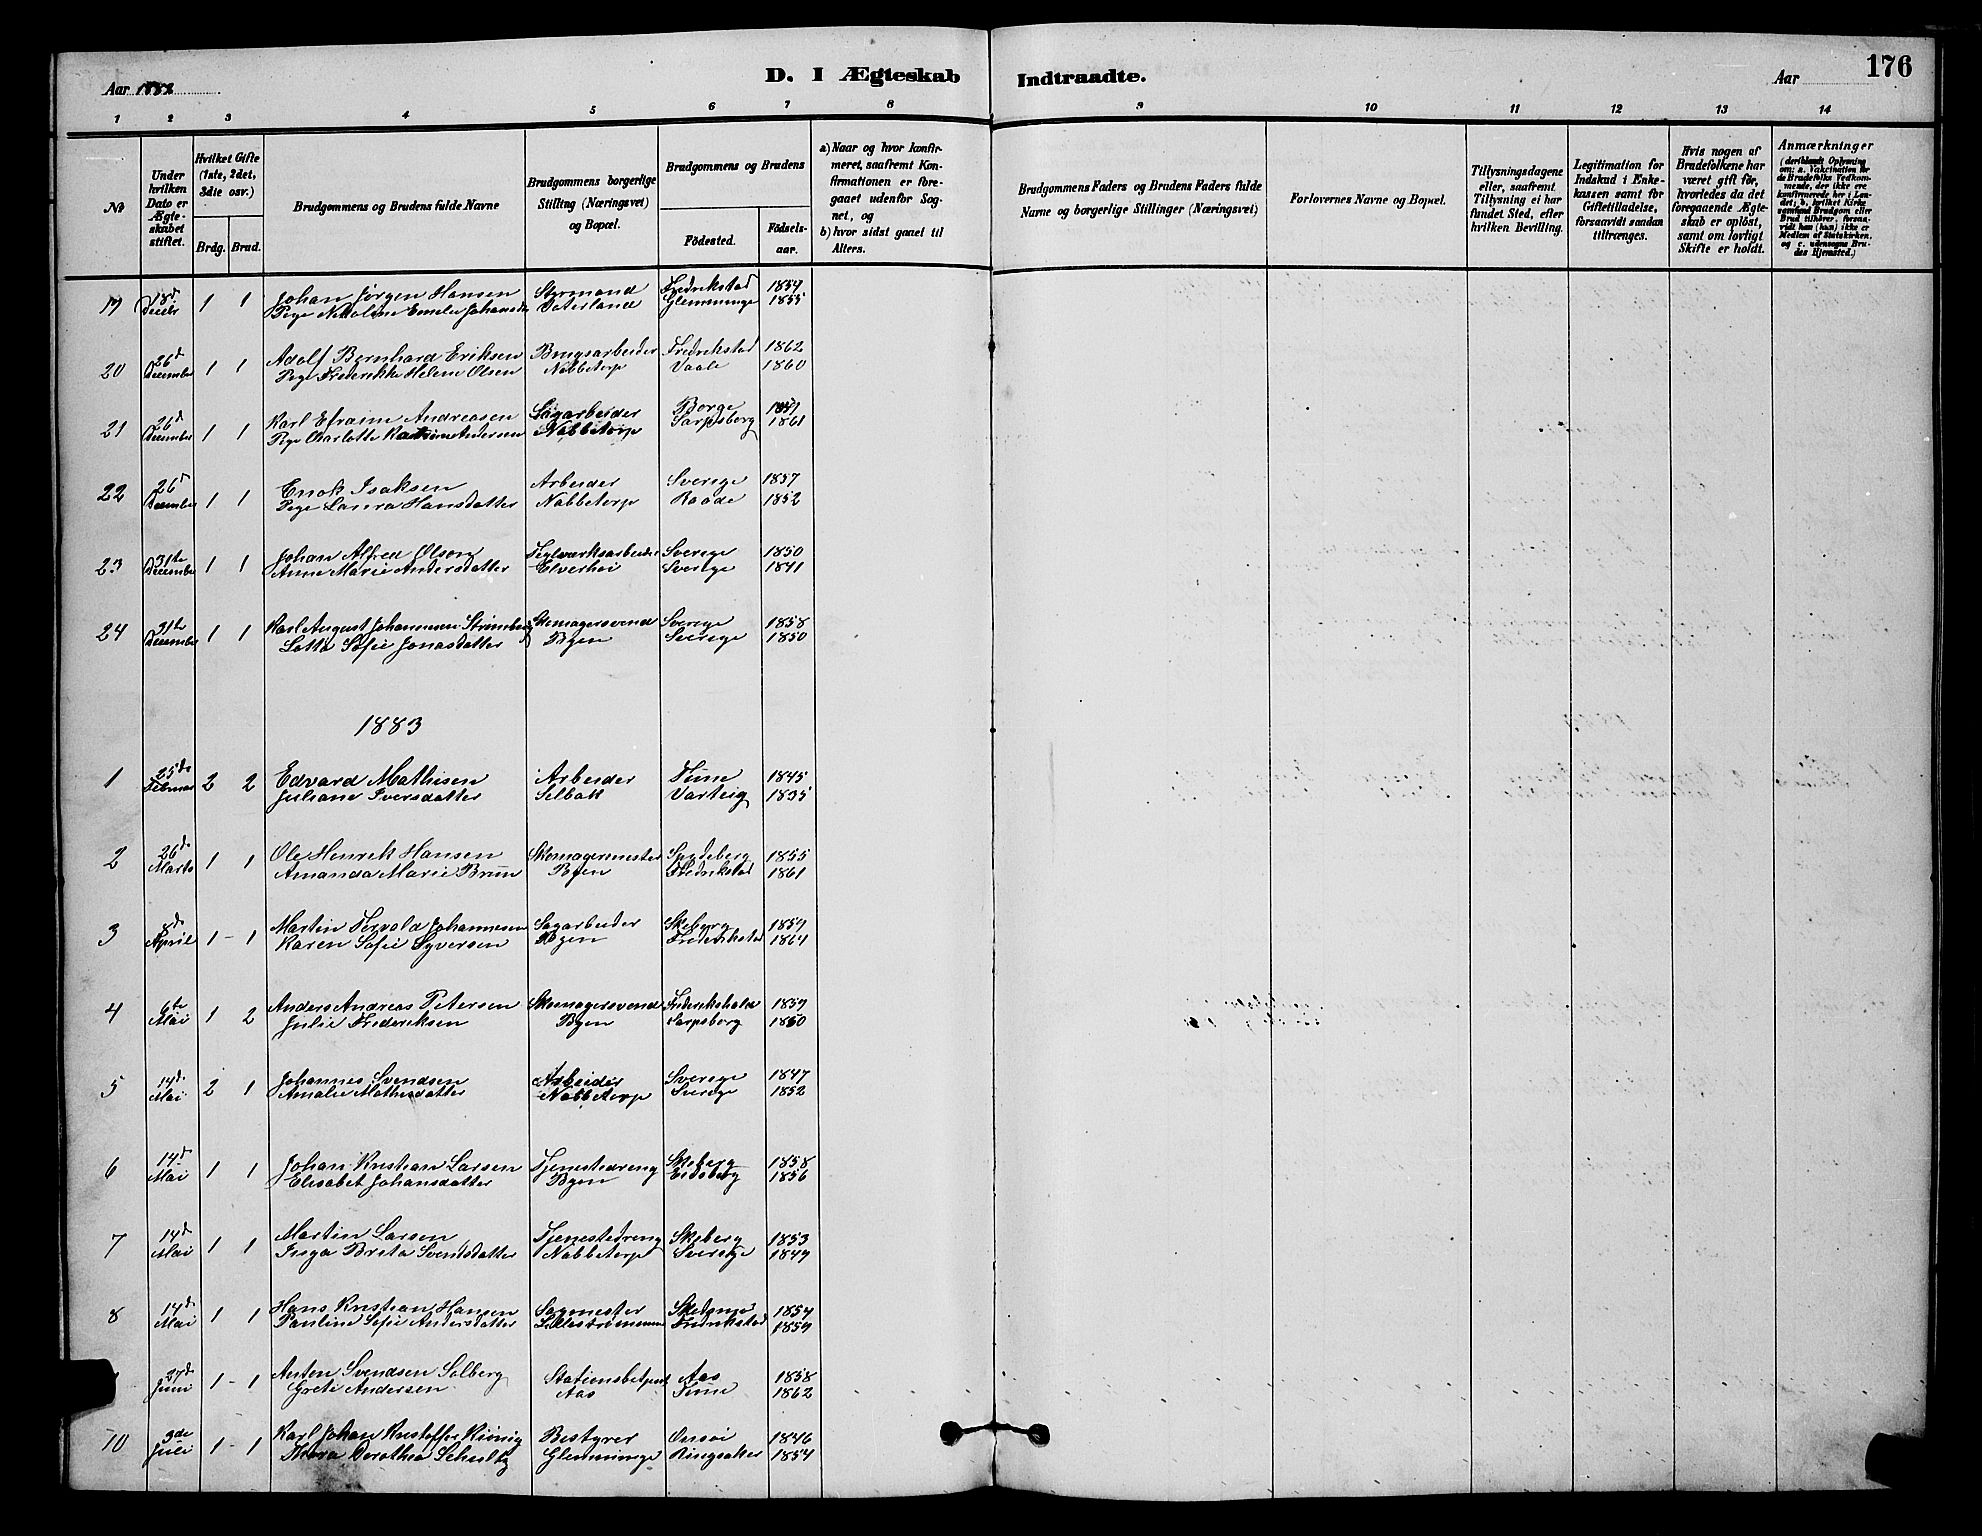 D. I Ægteskab Indtraadte. 176
Aar 1882 Aar
1 2 3 4 5 6 7 8 9 10 11 12 13 14
No
Under hvilken Dato er Ægteskabet stiftet.
Hvilket Gifte (1ste, 2det, 3die osv.)
Brdg. Brud.
Brudgommens og Brudens fulde Navne
Brudgommens borgerlige Stilling (Næringsvei) og Bopæl.
Brudgommens og Brudens
Födested. Födselsaar.
a) Naar og hvor konfirmeret, saafremt Konfirmationen er foregaaet udenfor Sognet, og
b) hvor sidst gaaet til Alters.
Brudgommens Faders og Brudens Faders fulde Navne og borgerlige Stillinger (Næringsvei)
Forlovernes Navne og Bopæl.
Tillysningsdagene eller, saafremt Tillysning ei har fundet Sted, efter hvilken Bevilling.
Legitimation for Indskud i Enkekassen samt for Giftetilladelse, forsaavidt saadan tiltrænges.
Hvis nogen af Brudefolkene har været gift för, hvorledes da det foregaaende Ægteskab er oplöst, samt om lovligt Skifte er holdt.
Anmærkninger
(deriblandt Oplysning om: a. Vakcination for de Brudefolks Vedkommende, der ikke ere konfirmerede her i Landet; b. hvilket Kirkesamfund Brudgom eller Brud tilhörer, forsaavidt han (hun) ikke er Medlem af Statskirken. og c. udensogns Brudes Hjemsted.)
19 18d Decbr 1 1 Johan Jörgen Hansen Styrmand Fredrikstad 1854
Pige Nekoline Emelie Johansd. Vaterland Glemminge 1855
20 26d December 1 1 Adolf Bernhard Eriksen Brugsarbeider Fredrikstad 1862
Pige Frederikke Helene Olsen Nabbetorp Vaale 1860
21 26d December 1 1 Karl Efraim Andreasen Sagarbeider Borge
Pige Charlotte Andersen Nabbetorp Sarpsborg 1861
22 26d December 1 1 Enok Isaksen Arbeider Sverige 1857
Pige Laura Hansdatter Nabbetorp Raade 1852
23 31te December 1 1 Johan Alfred Olson Teglværksarbeider Sverige 1850
Anne Marie Andersdatter Elverhöi Sverige 1841
24 31te December 1 1 Karl August Johannesen Strömberg Skomagersvend Sverige 1858
Lotta Sofie Jonasdatter Byen Sverige 1850
1883
1 25de Februar 2 2 Edvard Mathisen Arbeider Tune 1845
Juliane Iversdatter Selbak Varteig 1835
2 26de Marts 1 1 Ole Henrik Hansen Skomagermester Spydeberg 1855
Amanda Marie Bruun Byen Fredrikstad 1861
3 8de April 1 - 1 Martin Torvald Johannesen Sagarbeider Skeberg 1859
Karen Sofie Syversen Byen Frederikstad 1864
4 6te Mai 1 2 Anders Andreas Petersen Skomagersvend Frederikshald 1859
Julie Frederiksen Byen Sarpsborg 1850
5 14d Mai 2 1 Johannes Svendsen Arbeider Sverige 1847
Amalie Mathisdatter Nabbetorp Sverige 1852
6 14d Mai 1 1 Johan Kristian Larsen Tjenestedreng Skeberg 1858
Elisabet Johansdatter Byen Eidsberg 1856
7 14d Mai 1 1 Martin Larsen Tjenestedreng Skeberg 1853
Inga Brita Svendsdatter Nabbetorp Sverige 1849
8 14d Mai 1 1 Hans Kristian Hansen Sagmester Skedsmo 1854
Pauline Sofie Andersdatter Lilleströmmen Fredrikstad 1859
27d Juni 1 - 1 Anton Svendsen Solberg Stationsbetjent Aas 1858
Grete Andersen Aas Tune 1862
10 3de Juli 1 - 1 Karl Johan Kristoffer Bestyrer Onsöi 1846
Thora Dorothea Schultz Glemminge Ringsaker 1854